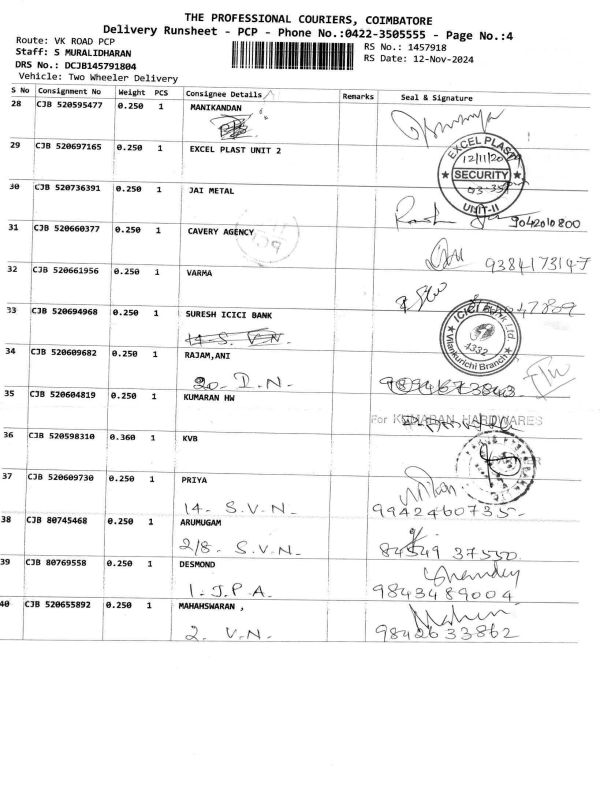 THE PROFESSIONAL COURIERS, COIMBATORE
Delivery Runsheet - PCP - Phone No.:0422-3505555 - Page No.:4
Route: VK ROAD PCP
RS No.: 1457918
Staff: S MURALIDHARAN
RS Date: 12-Nov-2024
DRS No.: DCJB145791804
Vehicle: Two Wheeler Delivery
S No Consignment No Weight PCS Consignee Details Remarks Seal & Signature
28 CJB 520595477 0.250 1 MANIKANDAN
29 CJB 520697165 0.250 1 EXCEL PLAST UNIT 2
EXCEL PLAST
12/11/20
SECURITY
03-35
UNIT-II
30 CJB 520736391 0.250 1 JAI METAL
9042010800
31 CJB 520660377 0.250 1 CAVERY AGENCY
9384173147
32 CJB 520661956 0.250 1 VARMA
33 CJB 520694968 0.250 1 SURESH ICICI BANK
ICICI Bank Ltd.
4332
Vilankurichi Branch
34 CJB 520609682 0.250 1 RAJAM,ANI
20- D.N-
35 CJB 520604819 0.250 1 KUMARAN HW
For KUMARAN HARDWARES
36 CJB 520598310 0.360 1 KVB
37 CJB 520609730 0.250 1 PRIYA
14- S.V.N- 9942460735-
38 CJB 80745468 0.250 1 ARUMUGAM
2/8- S.V.N- 84549 37550
39 CJB 80769558 0.250 1 DESMOND
1. J.P.A. 9843489004
40 CJB 520655892 0.250 1 MAHAHSWARAN ,
2. V.N- 9842633862